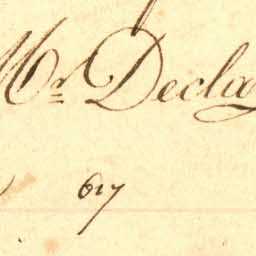 Mr Decla
617